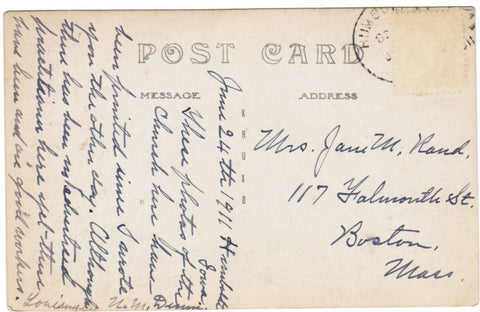 POST CARD
MESSAGE
ADDRESS
June 24th 1911 Humboldt
Iowa.
These photos of the
Church here have
been printed since I wrote
you the other day. Although
there has been no
here yet there
have been and are good workers.
Mrs. Jane M. Rand,
117 Falmouth St.
Boston,
Mass.